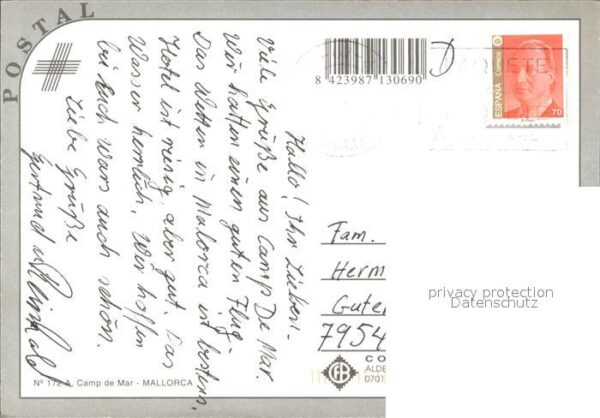 POSTAL
Hallo! Ihr Lieben-
Viele Grüße aus Camp De Mar.
Wir hatten einen guten Flug.
Das Wetter in Malorca ist bestens,
Hotel ist riesig, aber gut. Das
Wasser herrlich. Wir hoffen
bei Euch wars auch schön.
Liebe Grüße
Gertrud u. Reinhold
8 423987 130690
ESPAÑA
Correos
70
Fam.
Herm
Guten
7954
privacy protection
Datenschutz
CO
ALDE
0701
Nº 172 A, Camp de Mar - MALLORCA